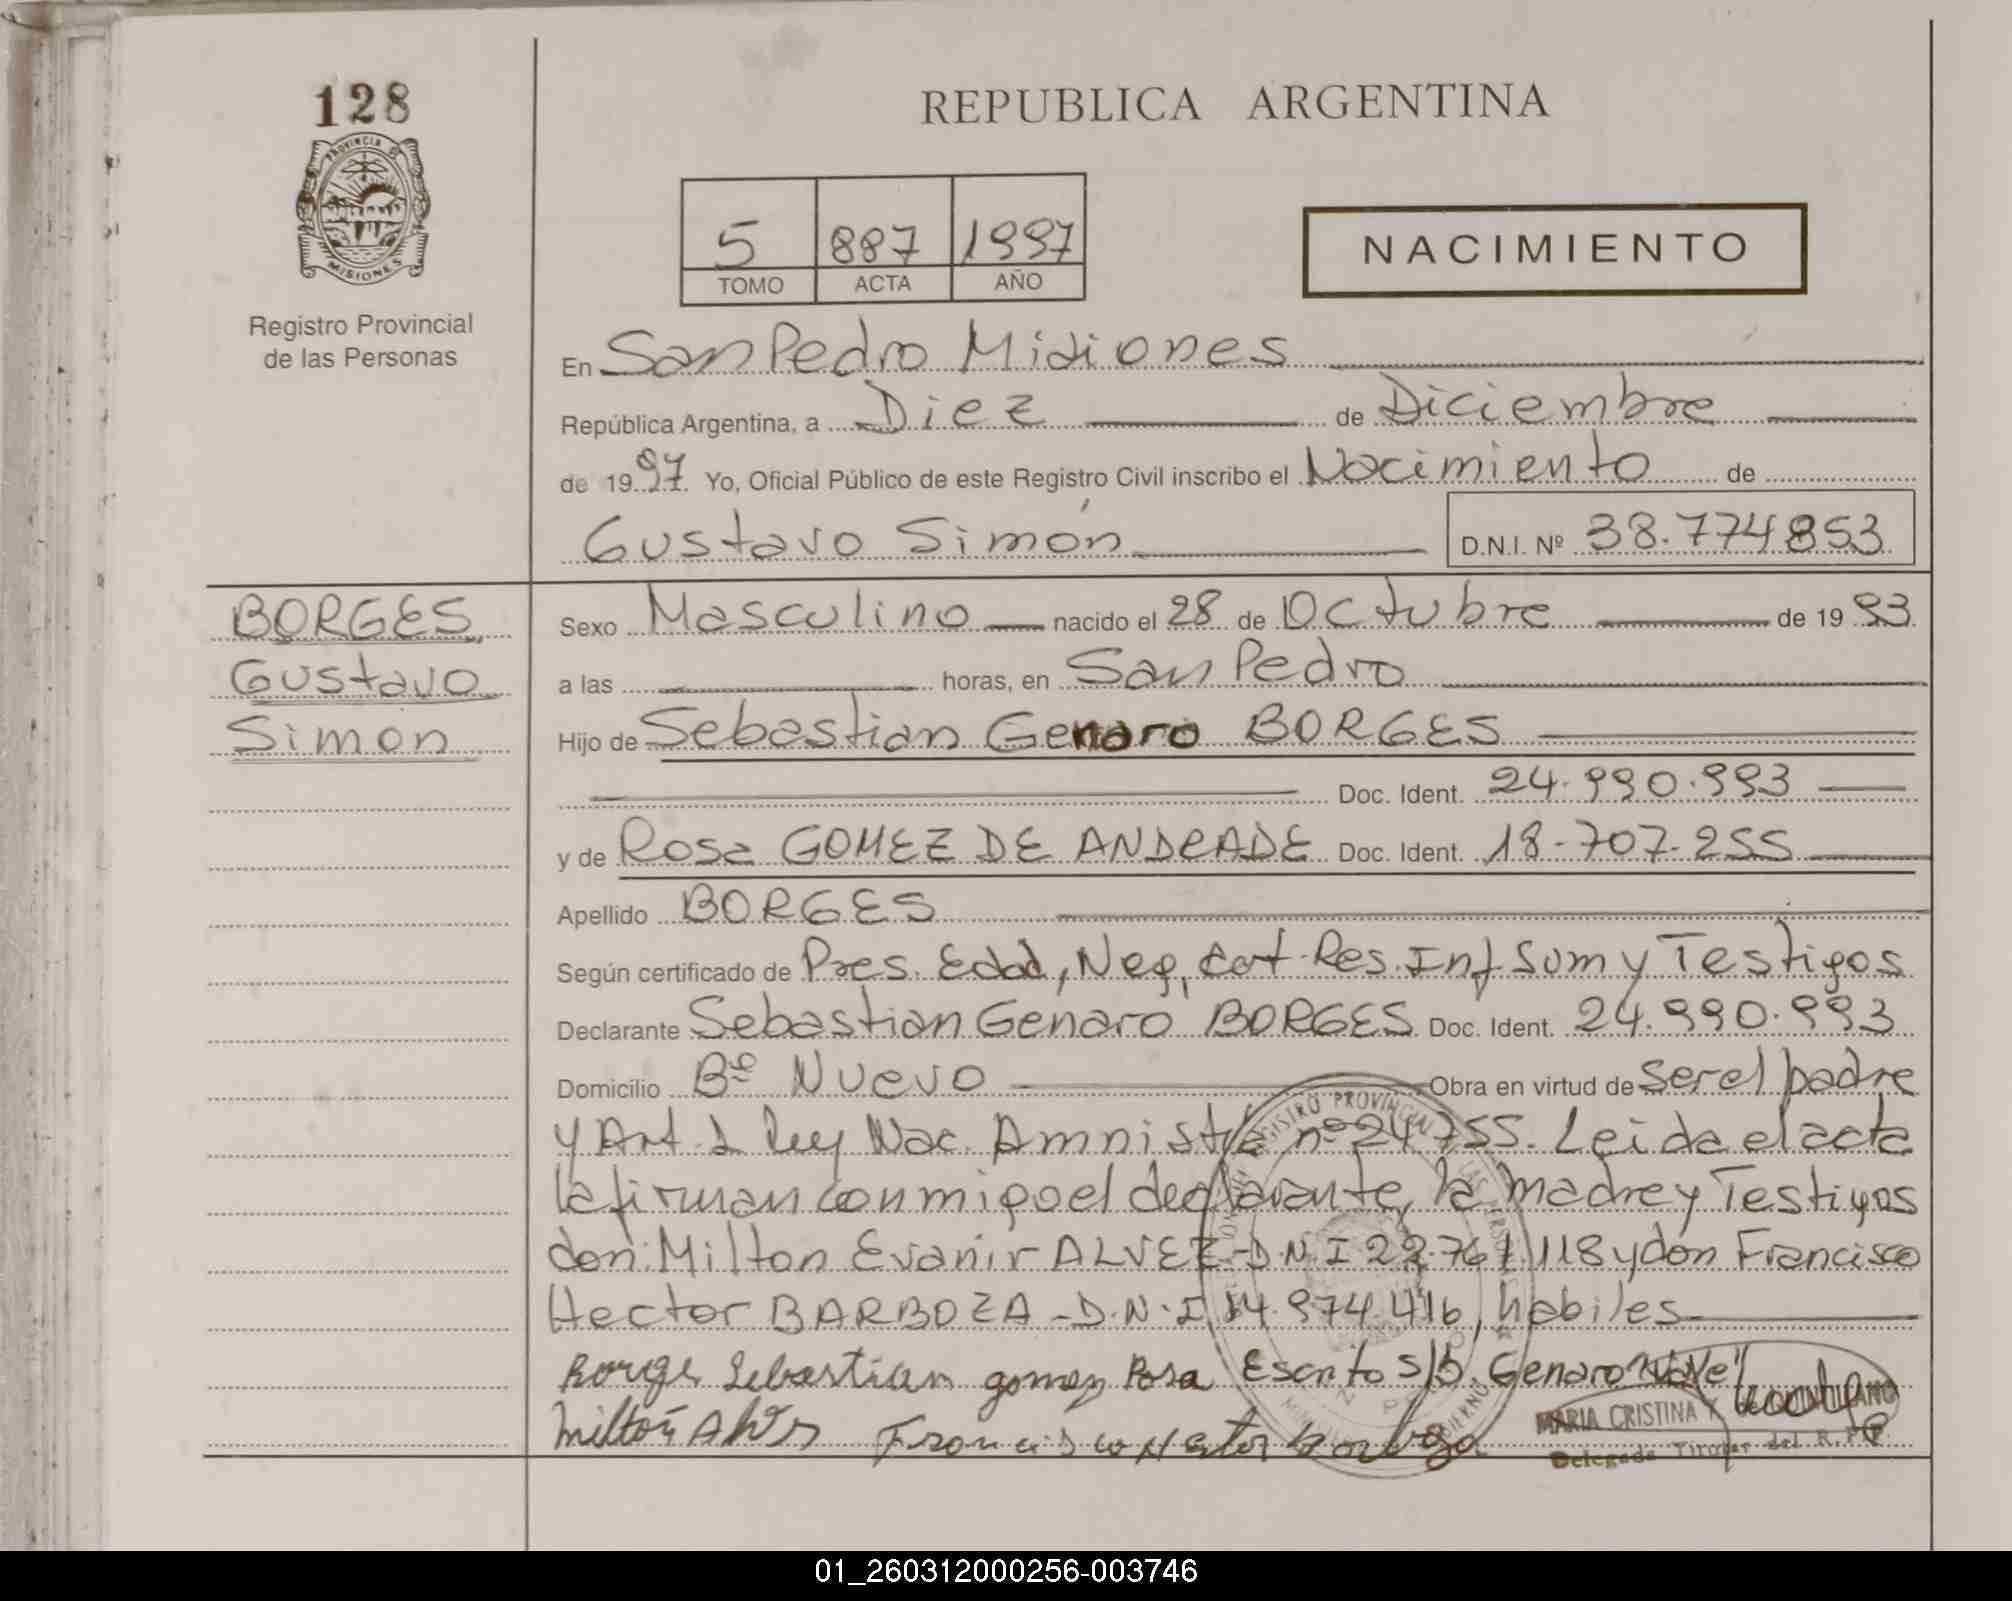 128
PROVINCIA DE
MISIONES
Registro Provincial
de las Personas
REPUBLICA ARGENTINA
5 887 1997
TOMO ACTA AÑO
NACIMIENTO
En San Pedro Misiones
República Argentina, a Diez de Diciembre
de 1997 Yo, Oficial Público de este Registro Civil inscribo el Nacimiento de
Gustavo Simón D.N.I. Nº 38.774853
BORGES
Gustavo
Simon
Sexo Masculino nacido el 28 de Octubre de 1993
a las horas, en San Pedro
Hijo de Sebastian Genaro BORGES
Doc. Ident. 24.990.993
y de Rosa GOMEZ DE ANDRADE Doc. Ident. 18-707.255
Apellido BORGES
Según certificado de Pres. Edad, Neg, Cat. Res. Inf Sum y Testigos
Declarante Sebastian Genaro BORGES Doc. Ident. 24.990.993
Domicilio Bº Nuevo Obra en virtud de ser el padre
y Art. 1 Ley Nac. Amnistía nº 24755. Leida el acta
la firman conmigo el declarante, la madre y Testigos
don: Milton Evanir ALVEZ-D.N.I 22.761.118 y don Francisco
Hector BARBOZA-D.N.I 14.974.416, habiles
Borge Sebastian gomez Rosa Escrito s/b. Genaro "Vale"
Milton Alves Francisco Hector Barboza
MARIA CRISTINA
Delegada Titular del R.P.P.
01_260312000256-003746